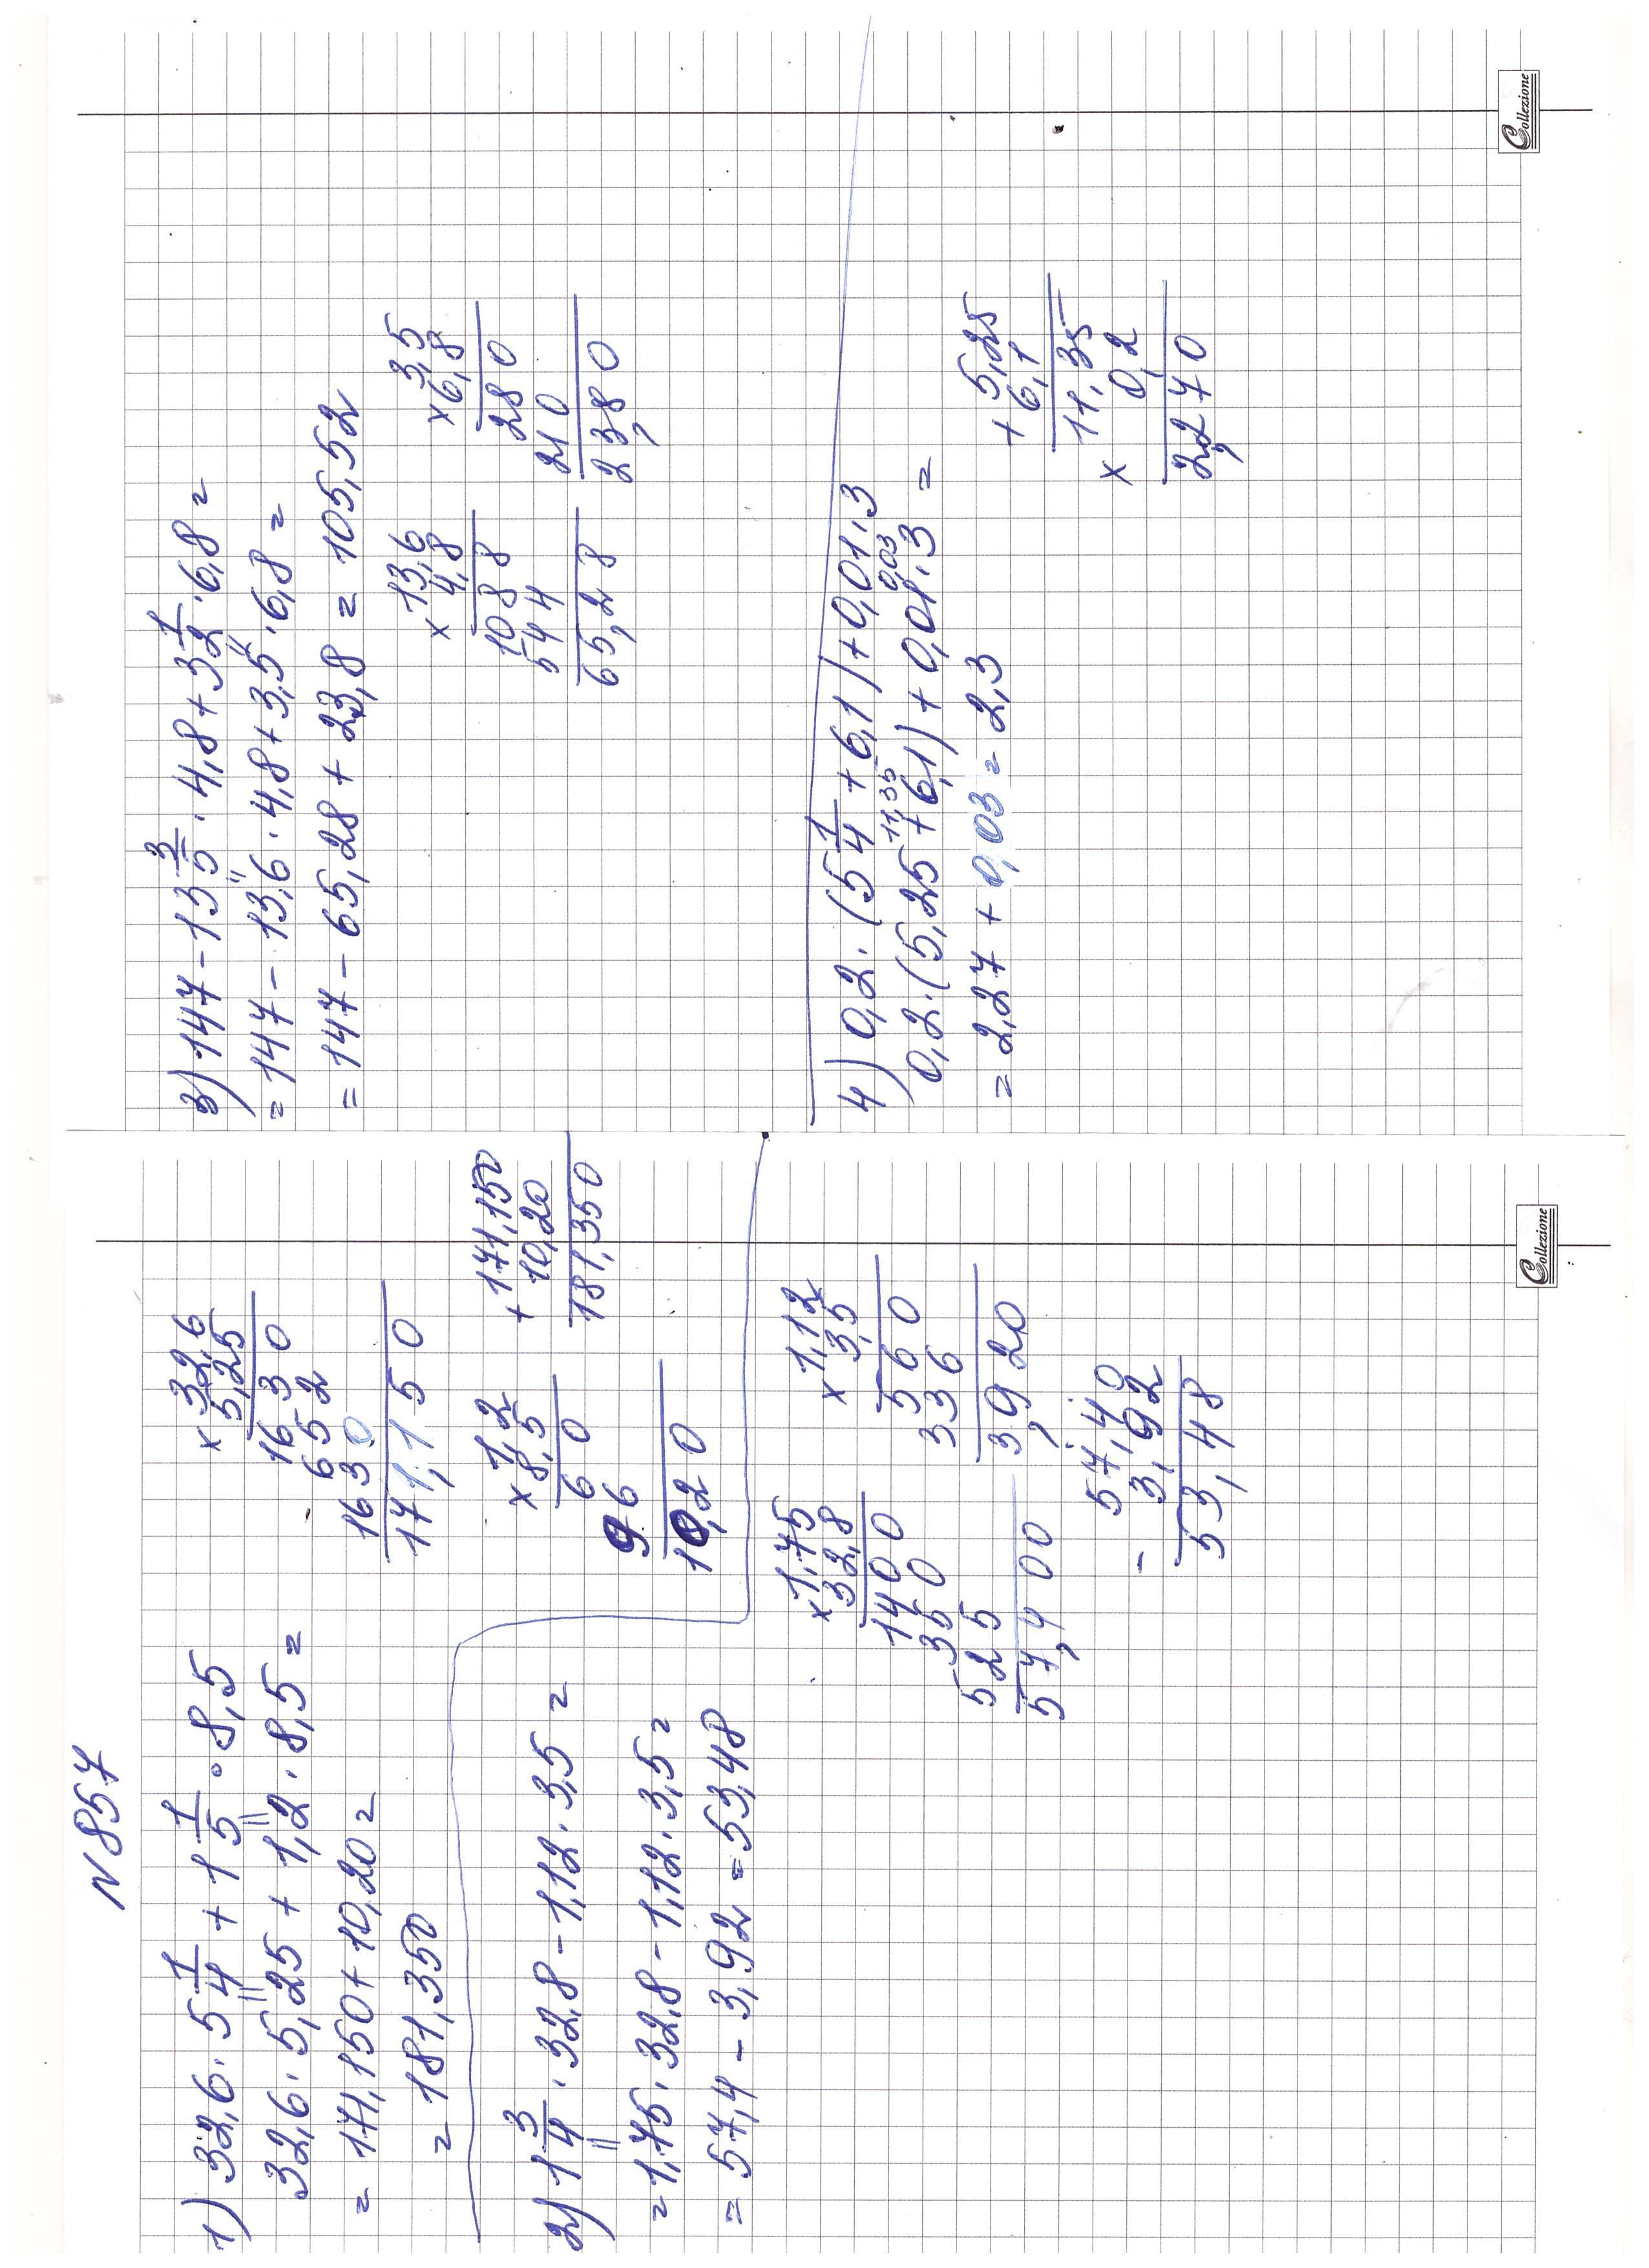 N 857
1) 32,6 · 5 1/4 + 1 1/5 · 8,5
32,6 · 5,25 + 1,2 · 8,5 =
= 171,150 + 10,20 =
= 181,350
× 32,6
5,25
1630
652
1630
171,150
× 1,2
8,5
60
96
10,20
+ 171,150
10,20
181,350
2) 1 3/4 · 32,8 - 1,12 · 3,5 =
= 1,75 · 32,8 - 1,12 · 3,5 =
= 57,4 - 3,92 = 53,48
× 1,75
32,8
1400
350
525
57,400
× 1,12
3,5
560
336
3,920
- 57,40
3,92
53,48
Collezione
3) 147 - 13 3/5 · 4,8 + 3 1/2 · 6,8 =
= 147 - 13,6 · 4,8 + 3,5 · 6,8 =
= 147 - 65,28 + 23,8 = 105,52
× 13,6
4,8
1088
544
65,28
× 3,5
6,8
280
210
23,80
4) 0,2 · (5 1/4 + 6,1) + 0,01 · 3
11,35 0,03
0,2 · (5,25 + 6,1) + 0,01 · 3 =
= 2,27 + 0,03 = 2,3
+ 5,25
6,1
11,35
× 0,2
2,270
Collezione